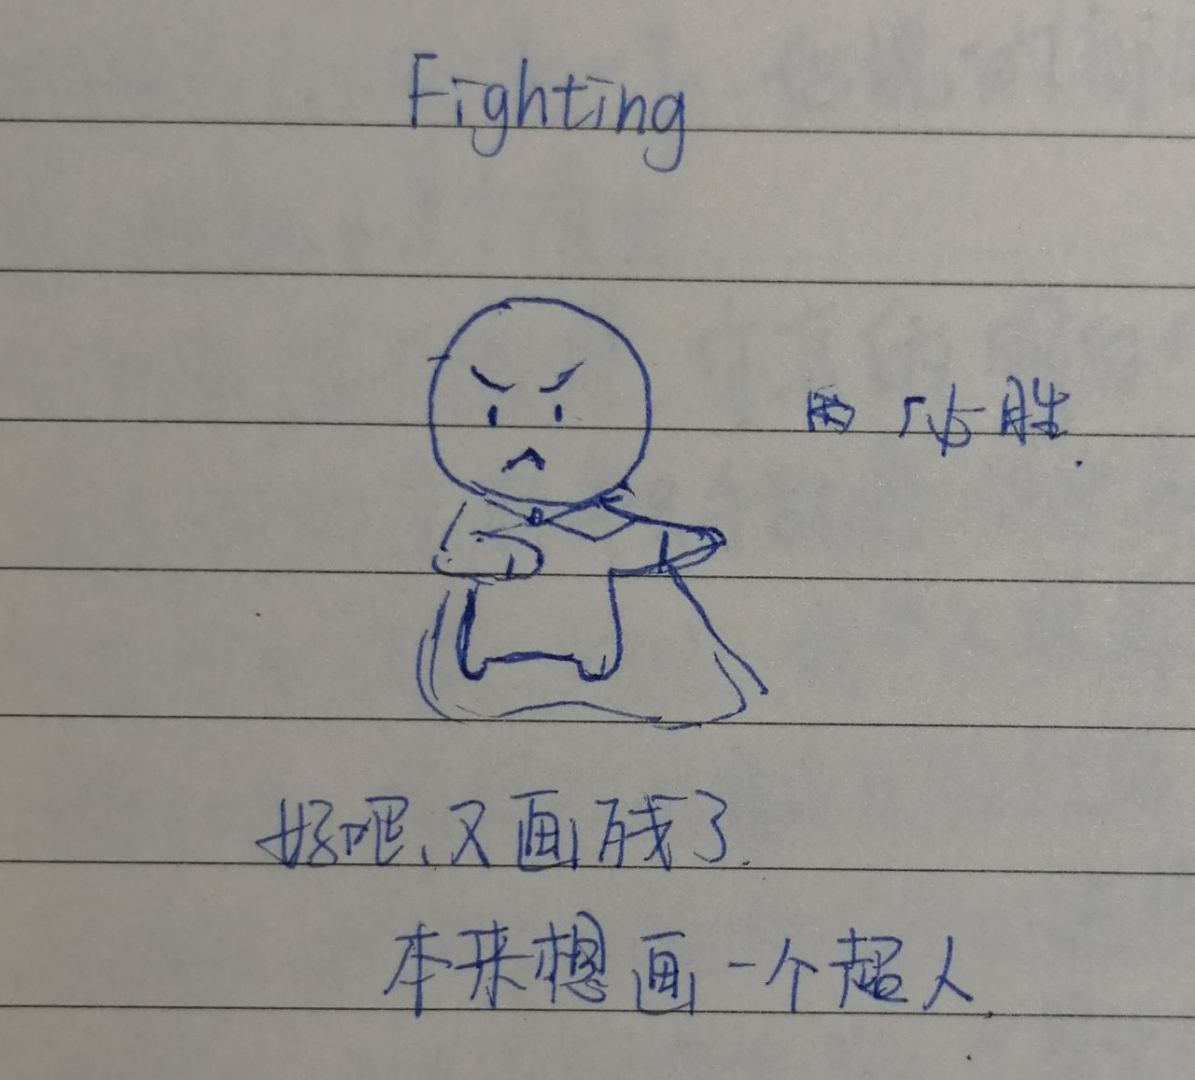 Fighting
两厂必胜.
好吧、又画残了.
本来想画一个超人.